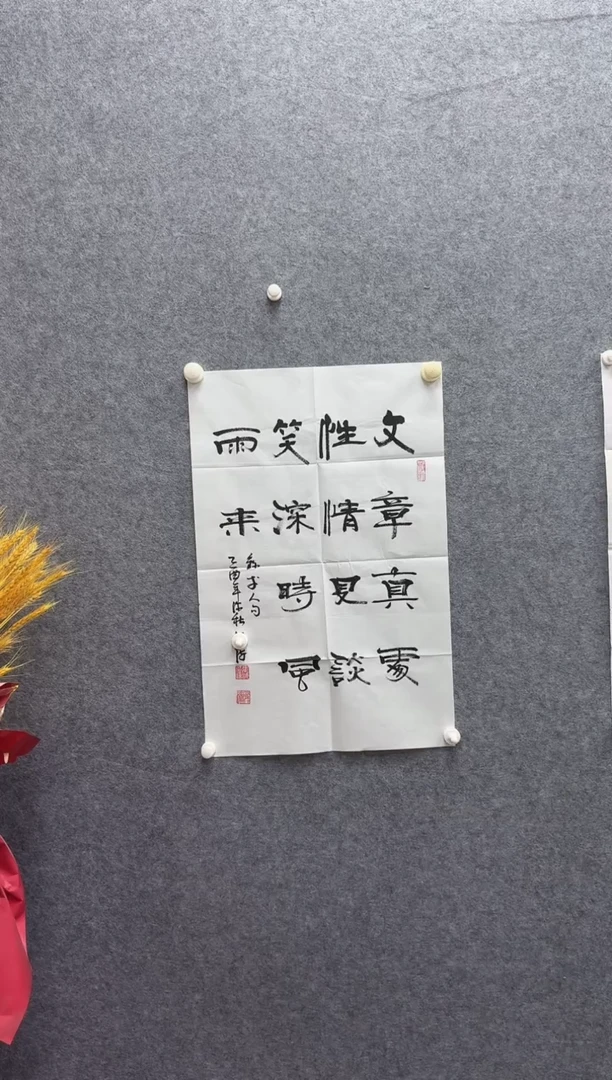 文章真處
性情見談
笑深時風
雨来
古人句
乙酉年深秋